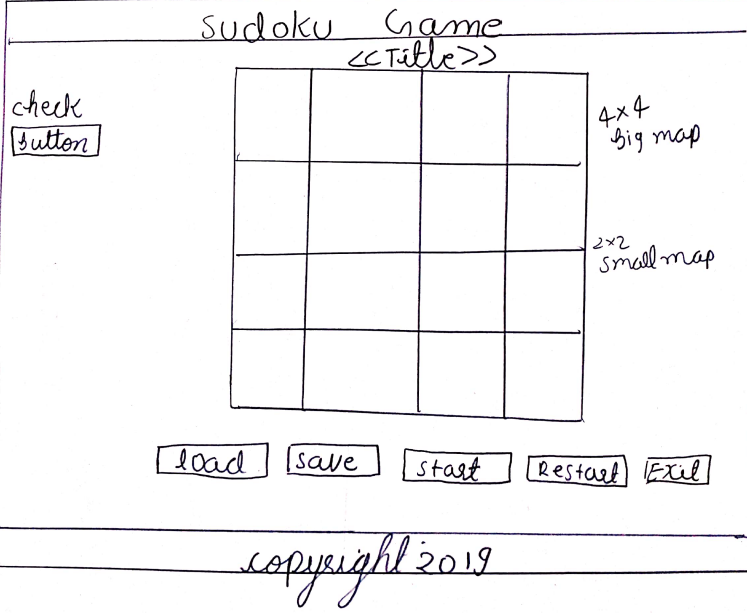 Sudoku Game
<<Title>>
check
button
4×4
big map
2×2
small map
load
save
start
Restart
Exit
copyright 2019